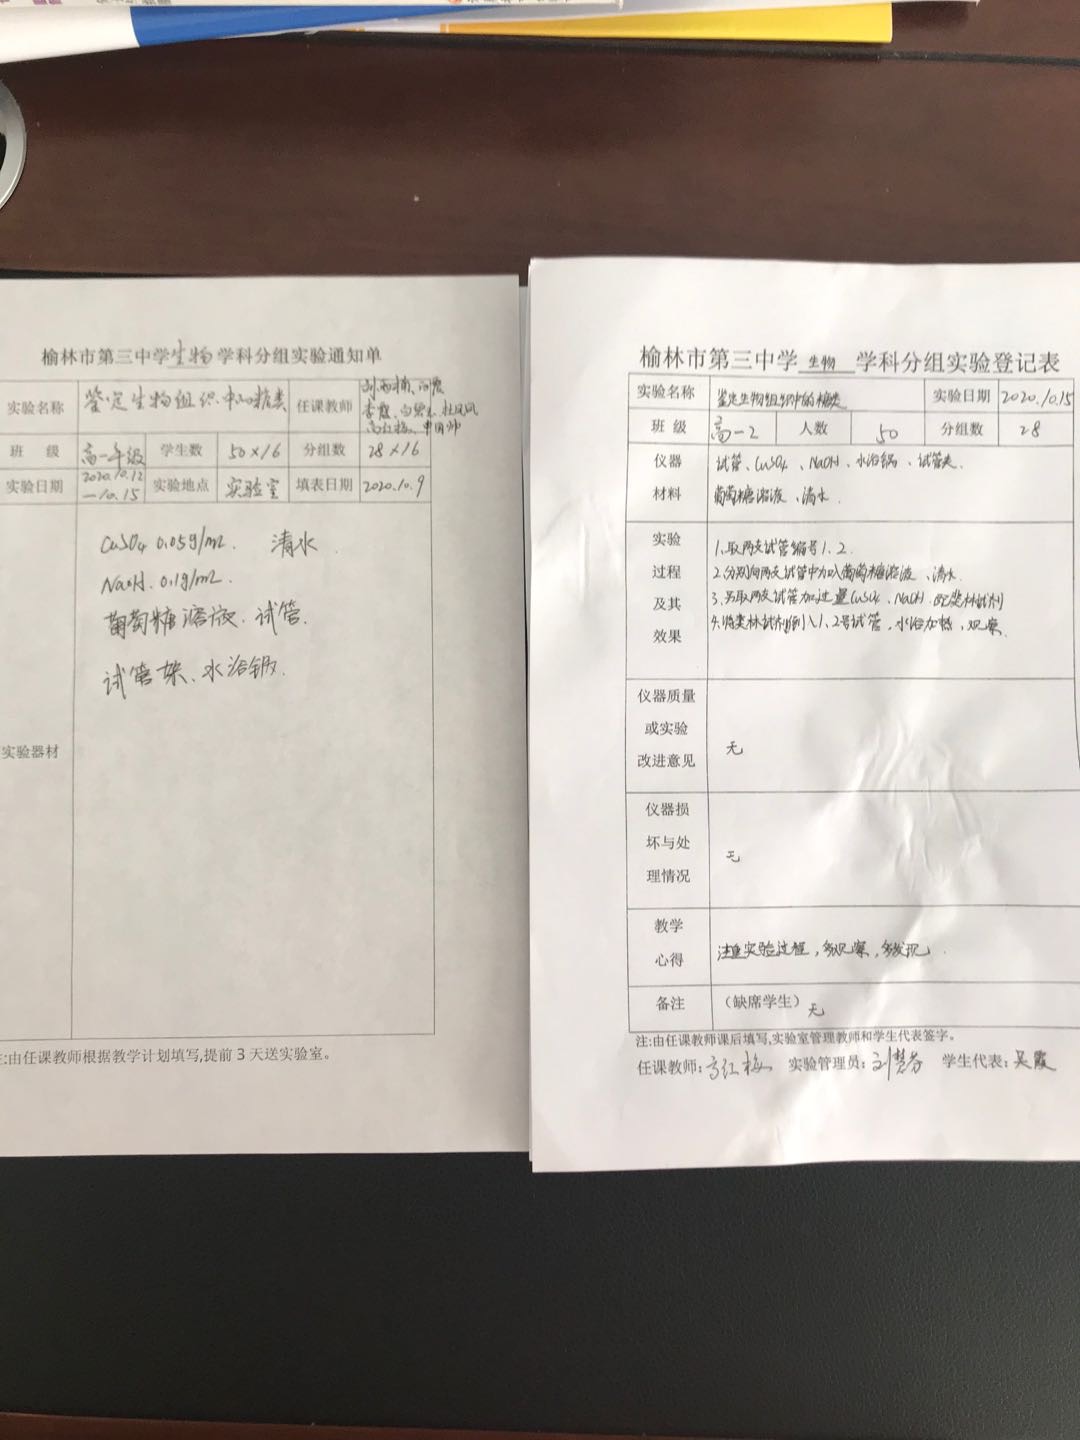 榆林市第三中学生物学科分组实验通知单
实验名称 鉴定生物组织中的糖类 任课教师
高红梅、申国帅
班 级 高一年级 学生数 50×16 分组数 28×16
实验日期 2020.10.12—10.15 实验地点 实验室 填表日期 2020.10.9
实验器材
CuSO4 0.05g/mL. 清水.
NaOH. 0.1g/mL.
葡萄糖溶液. 试管.
试管架、水浴锅.
注:由任课教师根据教学计划填写,提前 3 天送实验室。
榆林市第三中学 生物 学科分组实验登记表
实验名称 鉴定生物组织中的糖类 实验日期 2020.10.15
班 级 高一2 人数 50 分组数 28
仪器材料
试管、CuSO4、NaOH、水浴锅、试管夹.
葡萄糖溶液、清水.
实验过程及其效果
1.取两支试管编号1、2.
2.分别向两支试管中加入葡萄糖溶液、清水.
3.另取两支试管加过量CuSO4、NaOH.配斐林试剂
4.将斐林试剂倒入1、2号试管,水浴加热,观察.
仪器质量或实验改进意见 无
仪器损坏与处理情况 无
教学心得 注重实验过程,多观察,多发现.
备注 (缺席学生) 无
注:由任课教师课后填写,实验室管理教师和学生代表签字。
任课教师: 高红梅 实验管理员: 刘慧芬 学生代表: 吴霞